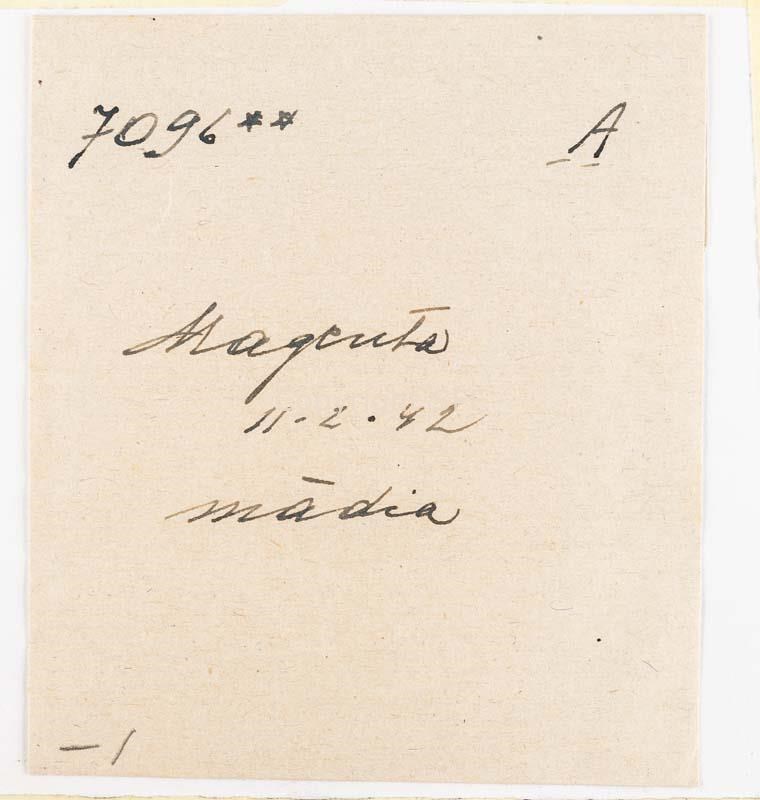 7096** A
Magenta
11-2.42
mādia
—1